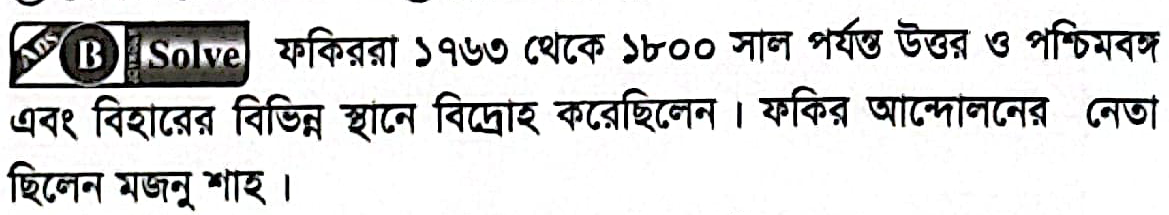 Ans B Solve ফকিররা ১৭৬৩ থেকে ১৮০০ সাল পর্যন্ত উত্তর ও পশ্চিমবঙ্গ
এবং বিহারের বিভিন্ন স্থানে বিদ্রোহ করেছিলেন। ফকির আন্দোলনের নেতা
ছিলেন মজনু শাহ।